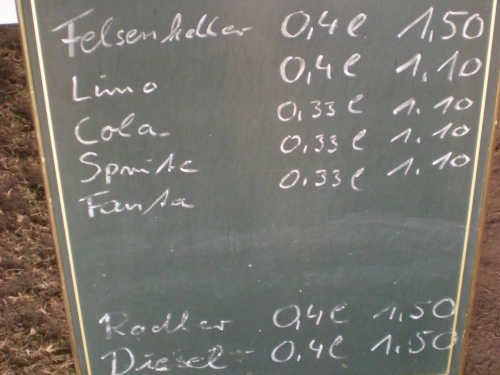 Felsenkeller 0,4l 1,50
Limo 0,4l 1.10
Cola 0,33l 1.10
Sprite 0.33l 1.10
Fanta 0.33l 1.10
Radler 0,4l 1,50
Diesel 0.4l 1.50